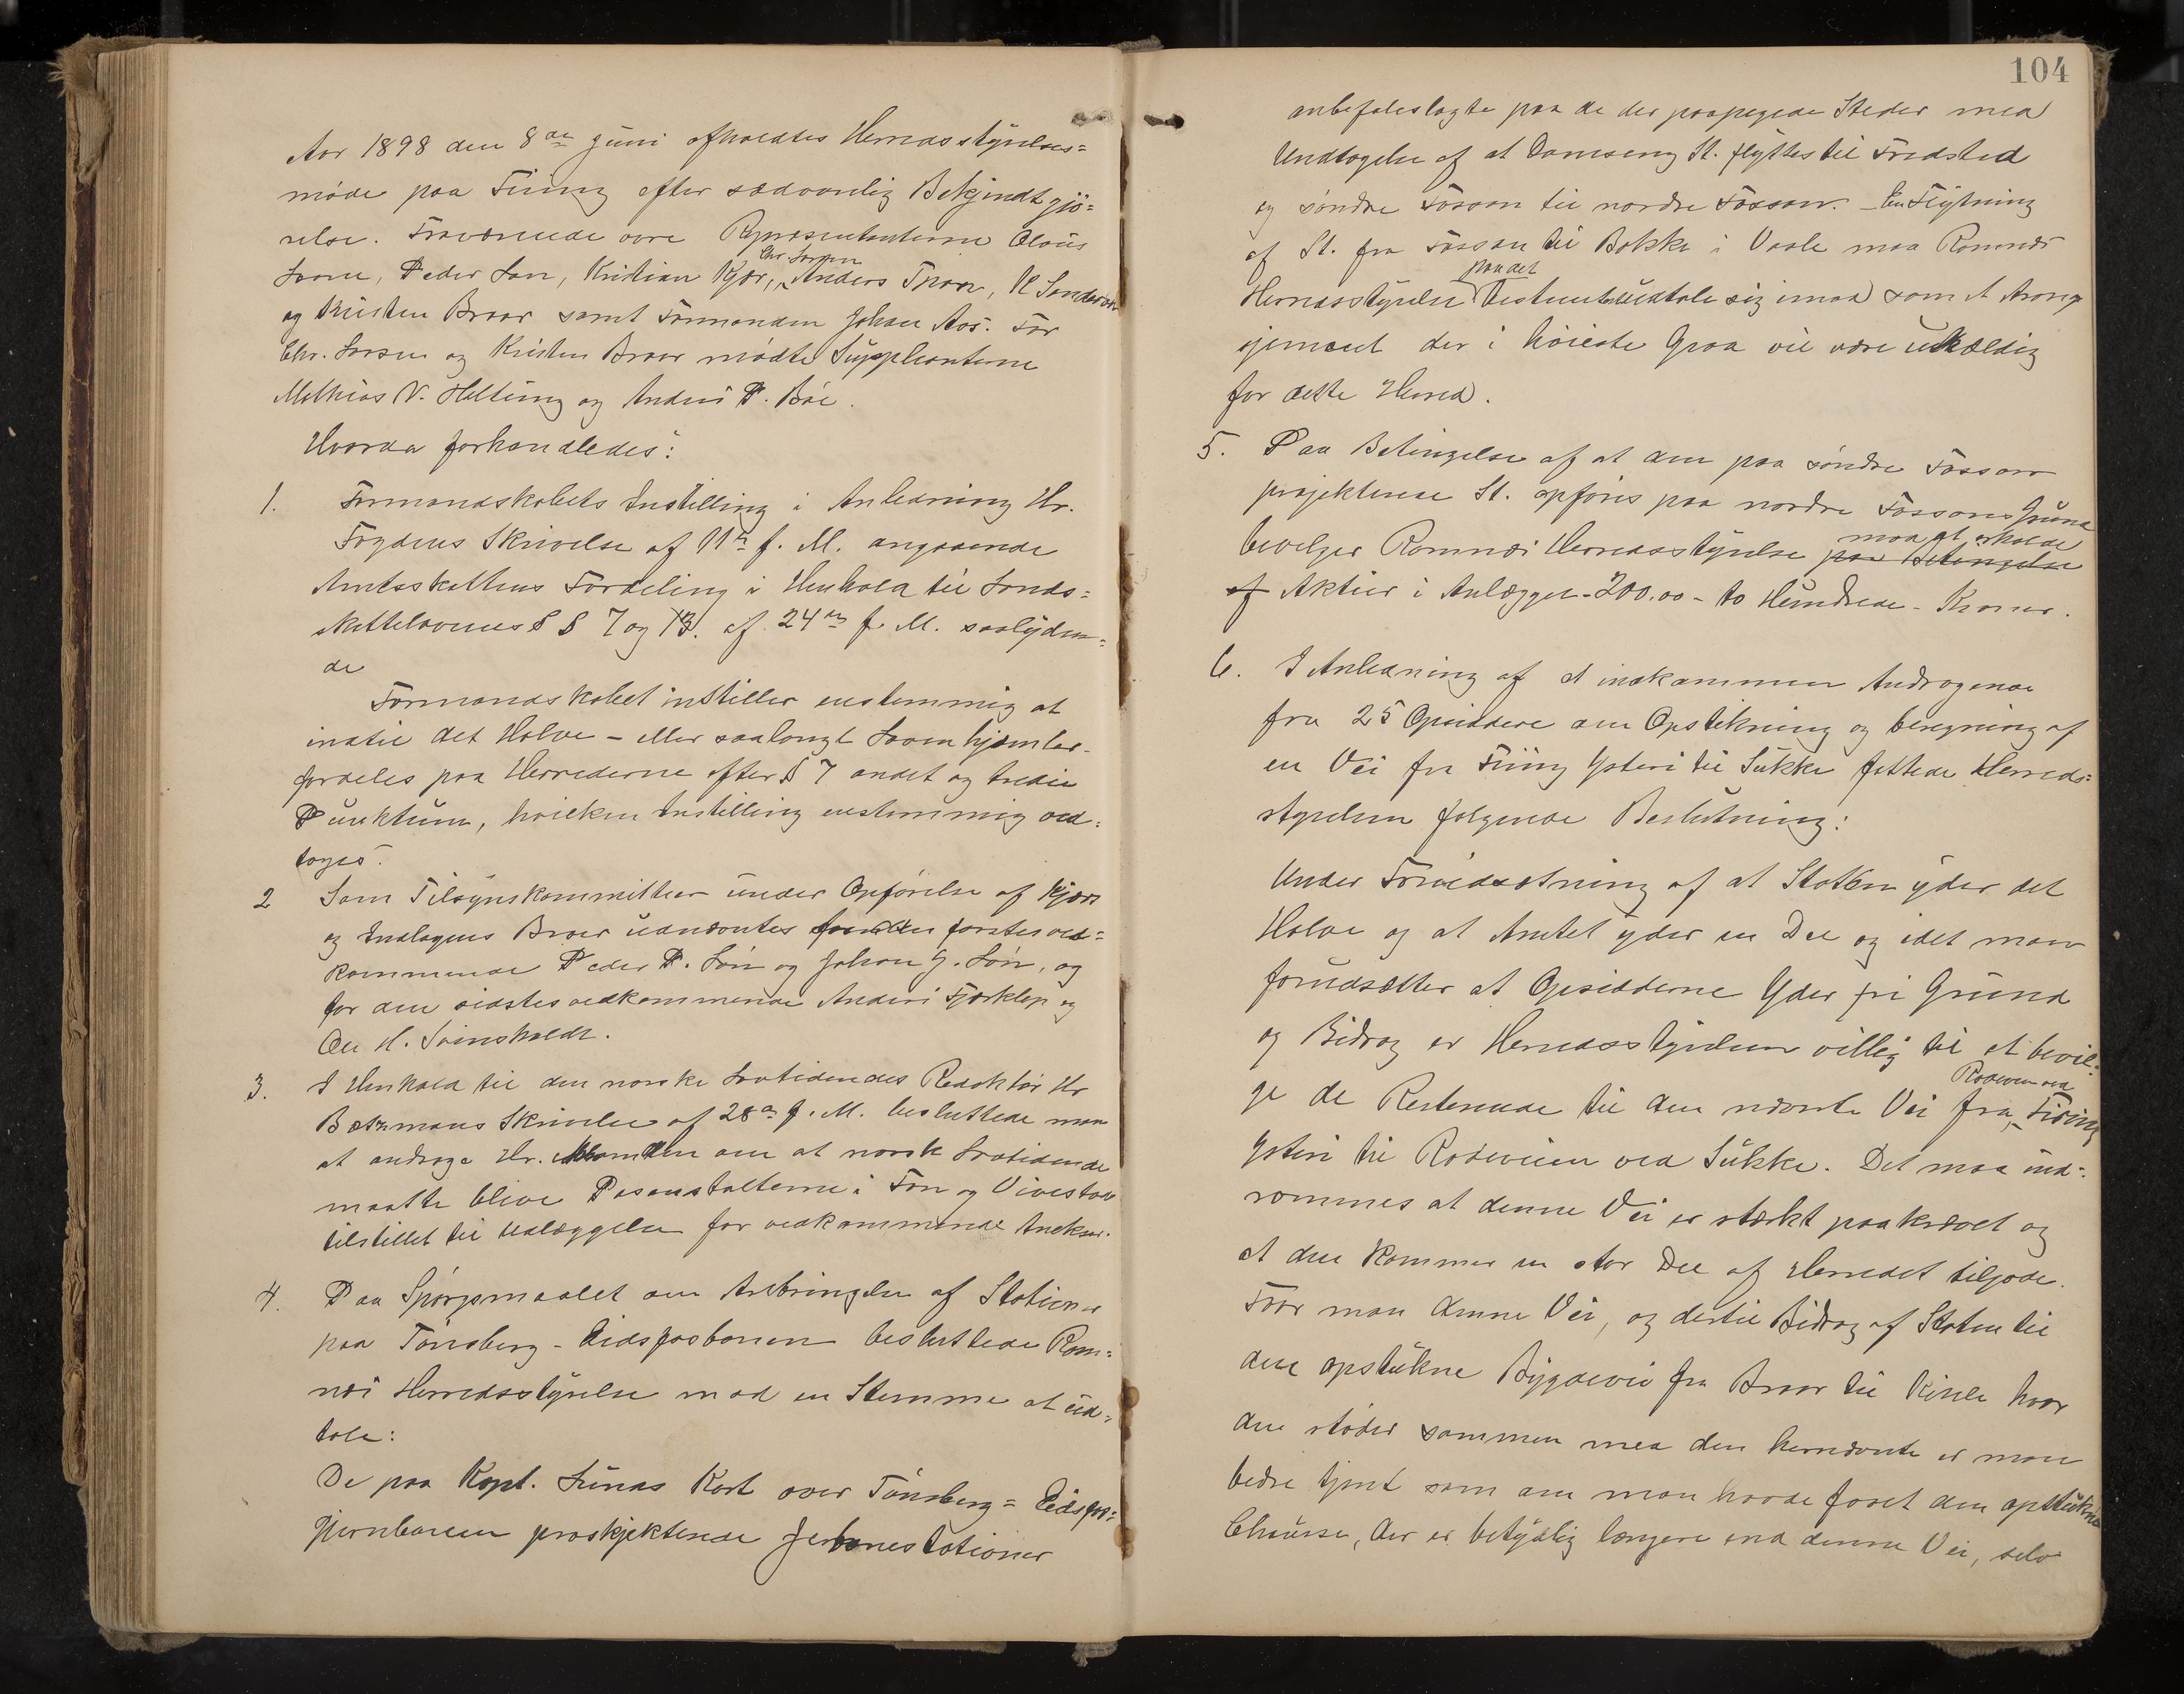 Aar 1898 den 8de Juni afholdtes Herredsstyrelses=
møde paa Fiing efter sædvanlig Bekjendtgjö=
relse. Fraværende vare Repræsentanterne Olaus
Chr. Larsen
Peder Lan, Kristian Kjær, Anders Traar,
og Kristen Braar samt Formanden Johan Aas. For
Chr. Larsen og Kristen Braar mødte Suppleanterne
Mathias N. Helting og Anders P. Böe.
Hvorda forhandledes:
1. Formandskabets Instilling i Anledning Hr.
Fogdens Skrivelse af 11te f. M. angaaende
Amtsskattens Fordeling i Henhold til Lands=
skattelovens § § 7 og 13. af 24de f. M. saalyden=
de
Formandskabet instiller enstemmig at
indtil det Halve – eller saalangt Loven hjemler
fordeles paa Herrederne efter § 7 andet og tredie
Punktum, hvilken Instilling enstemmig ved=
toges.
2 Som Tilsynskommitteer under Opførelse af Kjærs
og Indlagens Broer udnævntes for den førstes ved=
kommende Peder P. Lön og Johan J. Lön, og
for den sidstes vedkommende Anders Fjærklep og
Ole H. Svinsholdt.
3. I Henhold til den norske Lovtidendes Redaktör Hr
Bætzmans Skrivelse af 28de f. M. besluttede man
at andrage Hr. Amtmanden om at norsk Lovtidende
maatte blive Posanstalterne i Fon og Vivestad
tilstillet til Udlæggelse for vedkommende Anekser.
4. Paa Spørgsmaalet om Anbringelse af Stationer
paa Tønsberg - Eidsfosbanen besluttede Ram=
næs Herredsstyrelse mod en Stemme at ud=
tale:
De paa Kapt. Lunds Kart over Tønsberg = Eidsfos=
jernbanen proskjekterede Jerbanestationer
104
anbefales lagte paa de der paapegede Steder med
Undtagelse af at Damseng St. flyttes til Fredsted
og søndre Fossan til nordre Fossan. – En Flytning
af St. fra Fossan til Bakke i Vaale maa Ramnæs
paa det
Herredsstyrelse Bestemteste udtale sig imod som et Arang
sjement der i høieste Grad vil være uheldig
for dette Herred.
5. Paa Betingelse af at den paa søndre Fossan
projekterede St. opføres paa nordre Fossans Grund
maa at erholde
bevilger Ramnæs Herredsstyrelse paa Betingelse
af Aktier i Anlægget – 200.00 – to Hundrede – Kroner.
6. I Anledning af et indkommen Andragende
fra 25 Opsiddere om Opstikning og beregning af
en Vei fra Fiing Ysteri til Sukke fattede Herreds=
styrelsen følgende Beslutning:
Under Forudsætning af at Staten yder det
Halve og at Amtet yder en Del og idet man
forudsætter at Opsidderne Yder fri Grund
og Bidrag er Herredsstyrelsen villig til at bevil=
Rodeveien ved
ge de Resterende til den nævnte Vei fra Fiing
Ysteri til Rodeveien ved Sukke. Det maa ind=
rømmes at denne Vei er stærkt paakrævet og
at den kommer en stor Del af Herredet tilgode.
Faar man denne Vei, og dertil Bidrag af Staten til
den opstukne Bygdevei fra Braar til Kirle hvor
den støder sammen med den herværende er man
bedre tjent som om man havde faaet den opstukne
Chausse, der er betydelig længere end denne Vei, selv